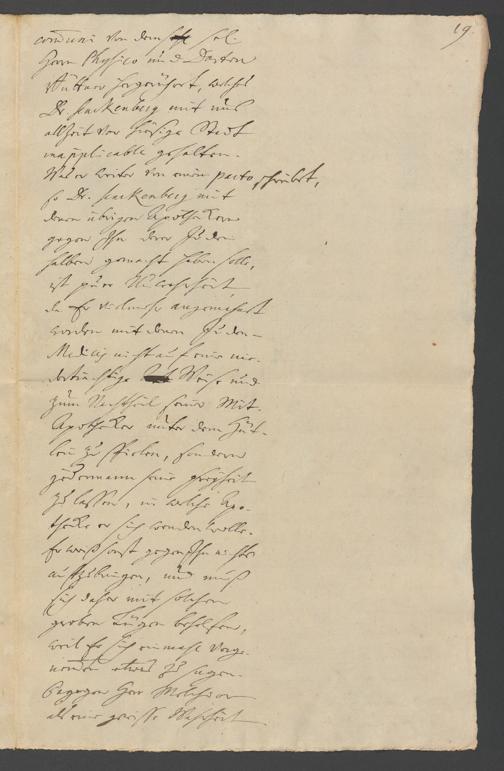 19.
communi von dem sel.
Herrn Physico und Doctore
Büttner hergerühret, welches
Dr. Senckenberg mit uns
allzeit vor hiesige Stadt
inapplicable gehalten.
Was er weiter von einem pacto schreibet,
so Dr. Senckenberg mit
denen übrigen Apothekern
gegen Ihn derer Juden
halben gemacht haben solle,
ist pure Unwahrheit
da Er vielmehr angemahnt
worden mit denen Juden-
Medicis nicht auf eine nie-
derträchtige Weise und
zum Nachtheil seiner Mit-
Apotheker unter dem Hüt-
lein zu spielen, sondern
jedermann seine freyheit
zu lassen, in welche Apo-
theke er sich wenden wolle.
Er weiß sonst gegen Ihn nichts
aufzubringen, und muß
sich daher mit solchen
groben Lügen behelfen,
weil Er sich einmahl vorge-
nommen etwas zu sagen.
Dagegen Herr Melchior
als eine gewisse Wahrheit